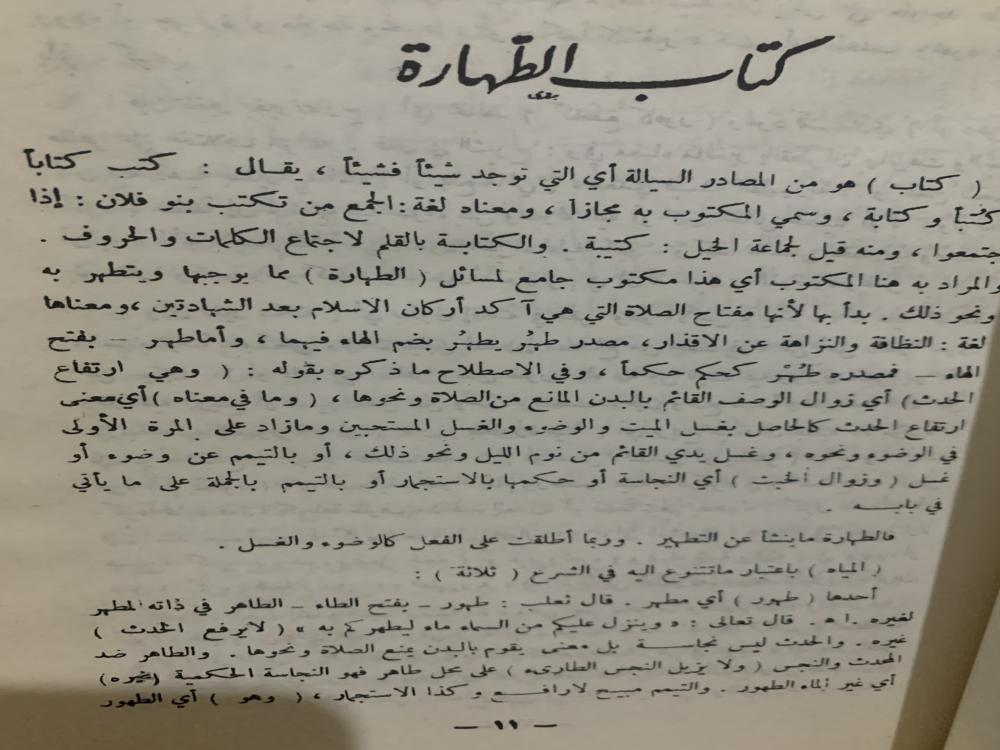 كتاب الطهارة
( كتاب ) هو من المصادر السيالة أي التي توجد شيئاً فشيئاً ، يقال : كتب كتاباً
كتْباً وكتابة ، وسمي المكتوب به مجازاً ، ومعناه لغة : الجمع من تكتب بنو فلان : إذا
جتمعوا ، ومنه قيل لجماعة الخيل : كتيبة . والكتابة بالقلم لاجتماع الكلمات والحروف .
والمراد به هنا المكتوب أي هذا مكتوب جامع لمسائل ( الطهارة ) مما يوجبها ويتطهر به
ونحو ذلك . بدأ بها لأنها مفتاح الصلاة التي هي آكد أركان الاسلام بعد الشهادتين ، ومعناها
لغة : النظافة والنزاهة عن الاقذار ، مصدر طهُر يطهُر بضم الهاء فيهما ، وأما طهر – بفتح
الهاء – فمصدره طُهْر كحكم حكماً ، وفي الاصطلاح ما ذكره بقوله : ( وهي ارتفاع
الحدث ) أي زوال الوصف القائم بالبدن المانع من الصلاة ونحوها ، ( وما في معناه ) أي معنى
ارتفاع الحدث كالحاصل بغسل الميت والوضوء والغسل المستحبين وما زاد على المرة الأولى
في الوضوء ونحوه ، وغسل يدي القائم من نوم الليل ونحو ذلك ، أو بالتيمم عن وضوء أو
غسل ( وزوال الخبث ) أي النجاسة أو حكمها بالاستجمار أو بالتيمم بالجملة على ما يأتي
في بابه .
فالطهارة ما ينشأ عن التطهير . وربما أطلقت على الفعل كالوضوء والغسل .
( المياه ) باعتبار ما تتنوع اليه في الشرع ( ثلاثة ) :
أحدها ( طهور ) أي مطهر . قال ثعلب : طهور – بفتح الطاء – الطاهر في ذاته المطهر
لغيره . ا ه . قال تعالى : « وينزل عليكم من السماء ماء ليطهركم به » ( لا يرفع الحدث )
غيره . والحدث ليس نجاسة بل معنى يقوم بالبدن يمنع الصلاة ونحوها . والطاهر ضد
المحدث والنجس ( ولا يزيل النجس الطارىء ) على محل طاهر فهو النجاسة الحكمية ( غيره )
أي غير الماء الطهور . والتيمم مبيح لا رافع وكذا الاستجمار ، ( وهو ) أي الطهور
– ١١ –